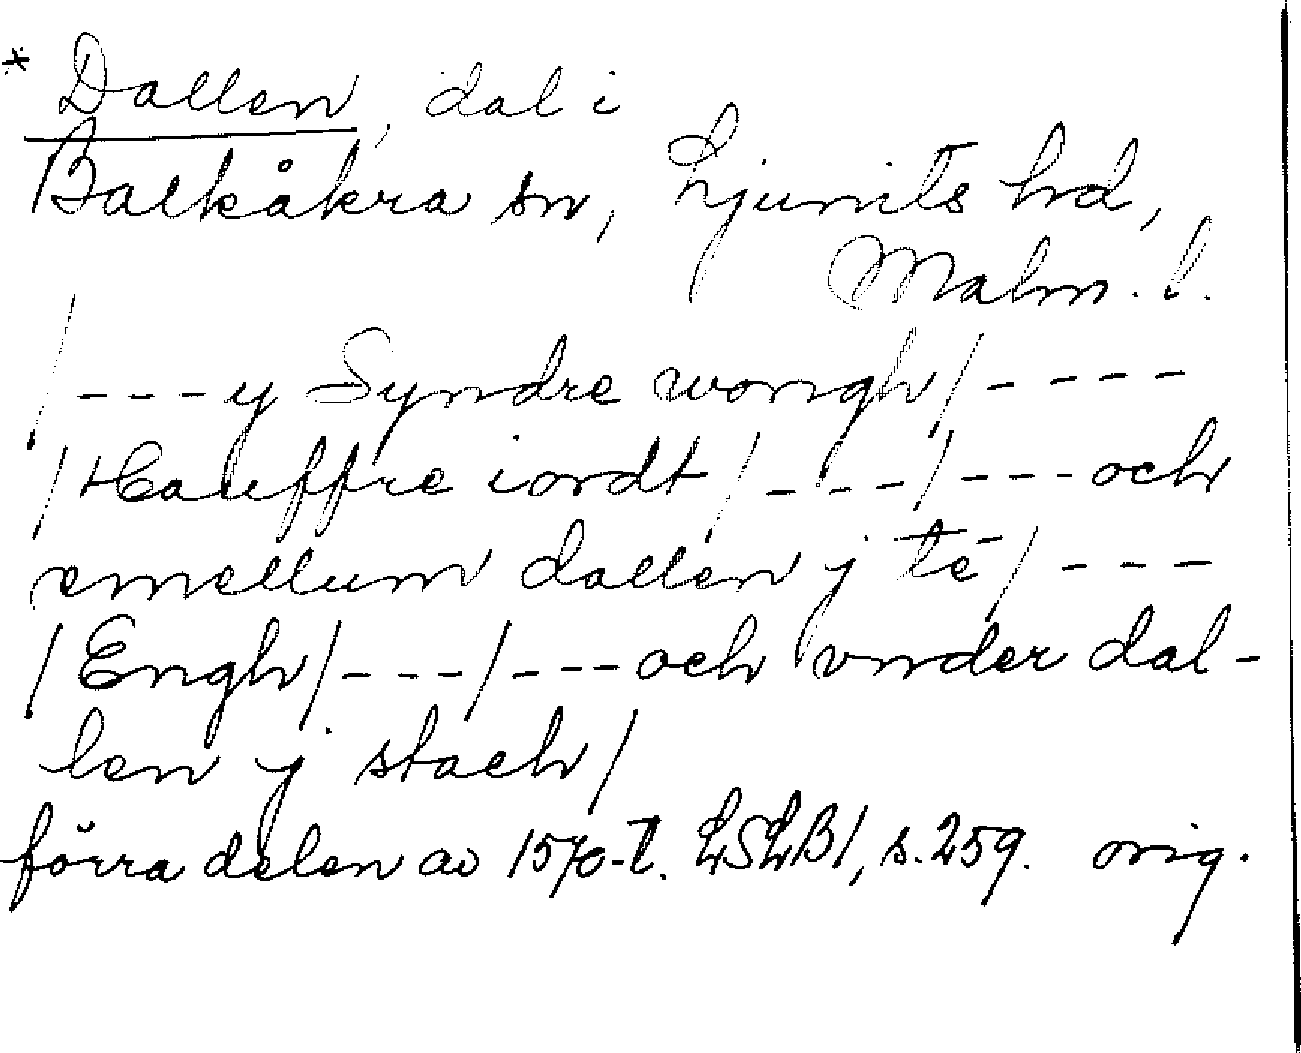 * Dallen, dal i
Balkåkra sn, Ljunits hd,
Malm. l.
/---y Syndre wongh/----
/Hauffre iordt/---/---och
emellum dallen j té/---
/Engh/---/---och vnder dal-
len j stach/
förra delen av 1570-t. LSLB1, s.259. orig.